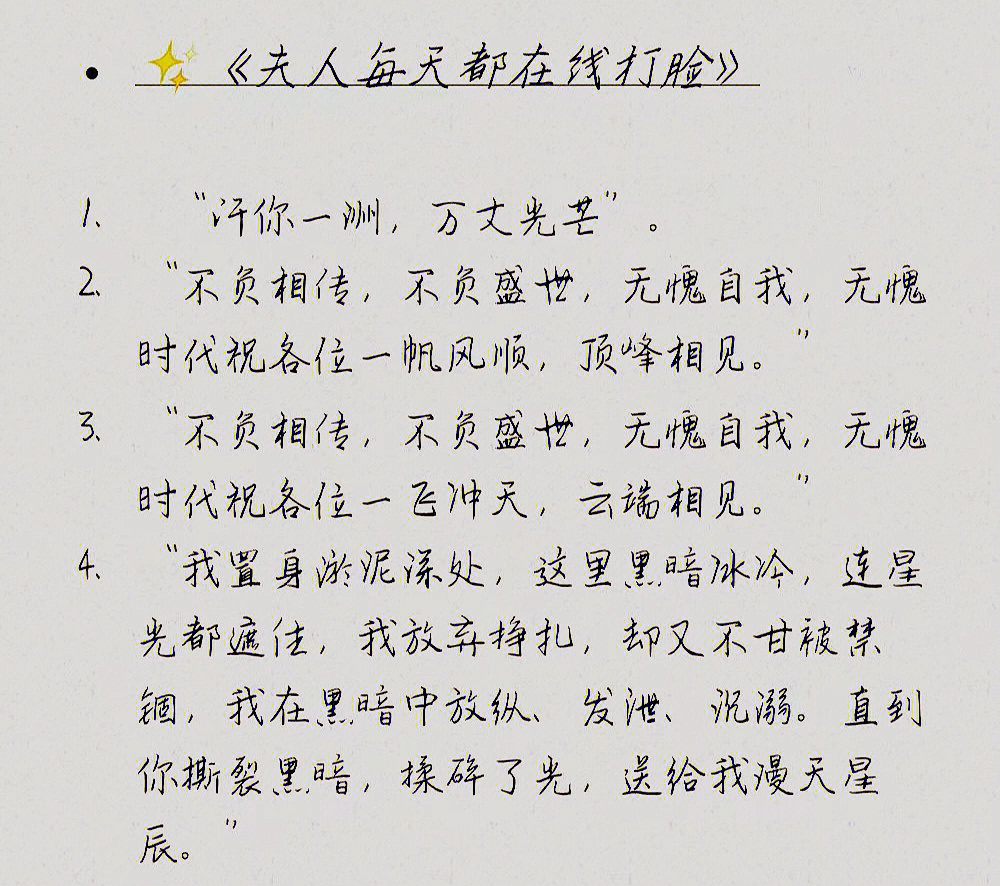 • ✨《夫人每天都在线打脸》
1、 “汗你一洲，万丈光芒”。
2、 “不负相传，不负盛世，无愧自我，无愧
时代祝各位一帆风顺，顶峰相见。”
3、 “不负相传，不负盛世，无愧自我，无愧
时代祝各位一飞冲天，云端相见。”
4、 “我置身淤泥深处，这里黑暗冰冷，连星
光都遮住，我放弃挣扎，却又不甘被禁
锢，我在黑暗中放纵、发泄、沉溺。直到
你撕裂黑暗，揉碎了光，送给我漫天星
辰。”